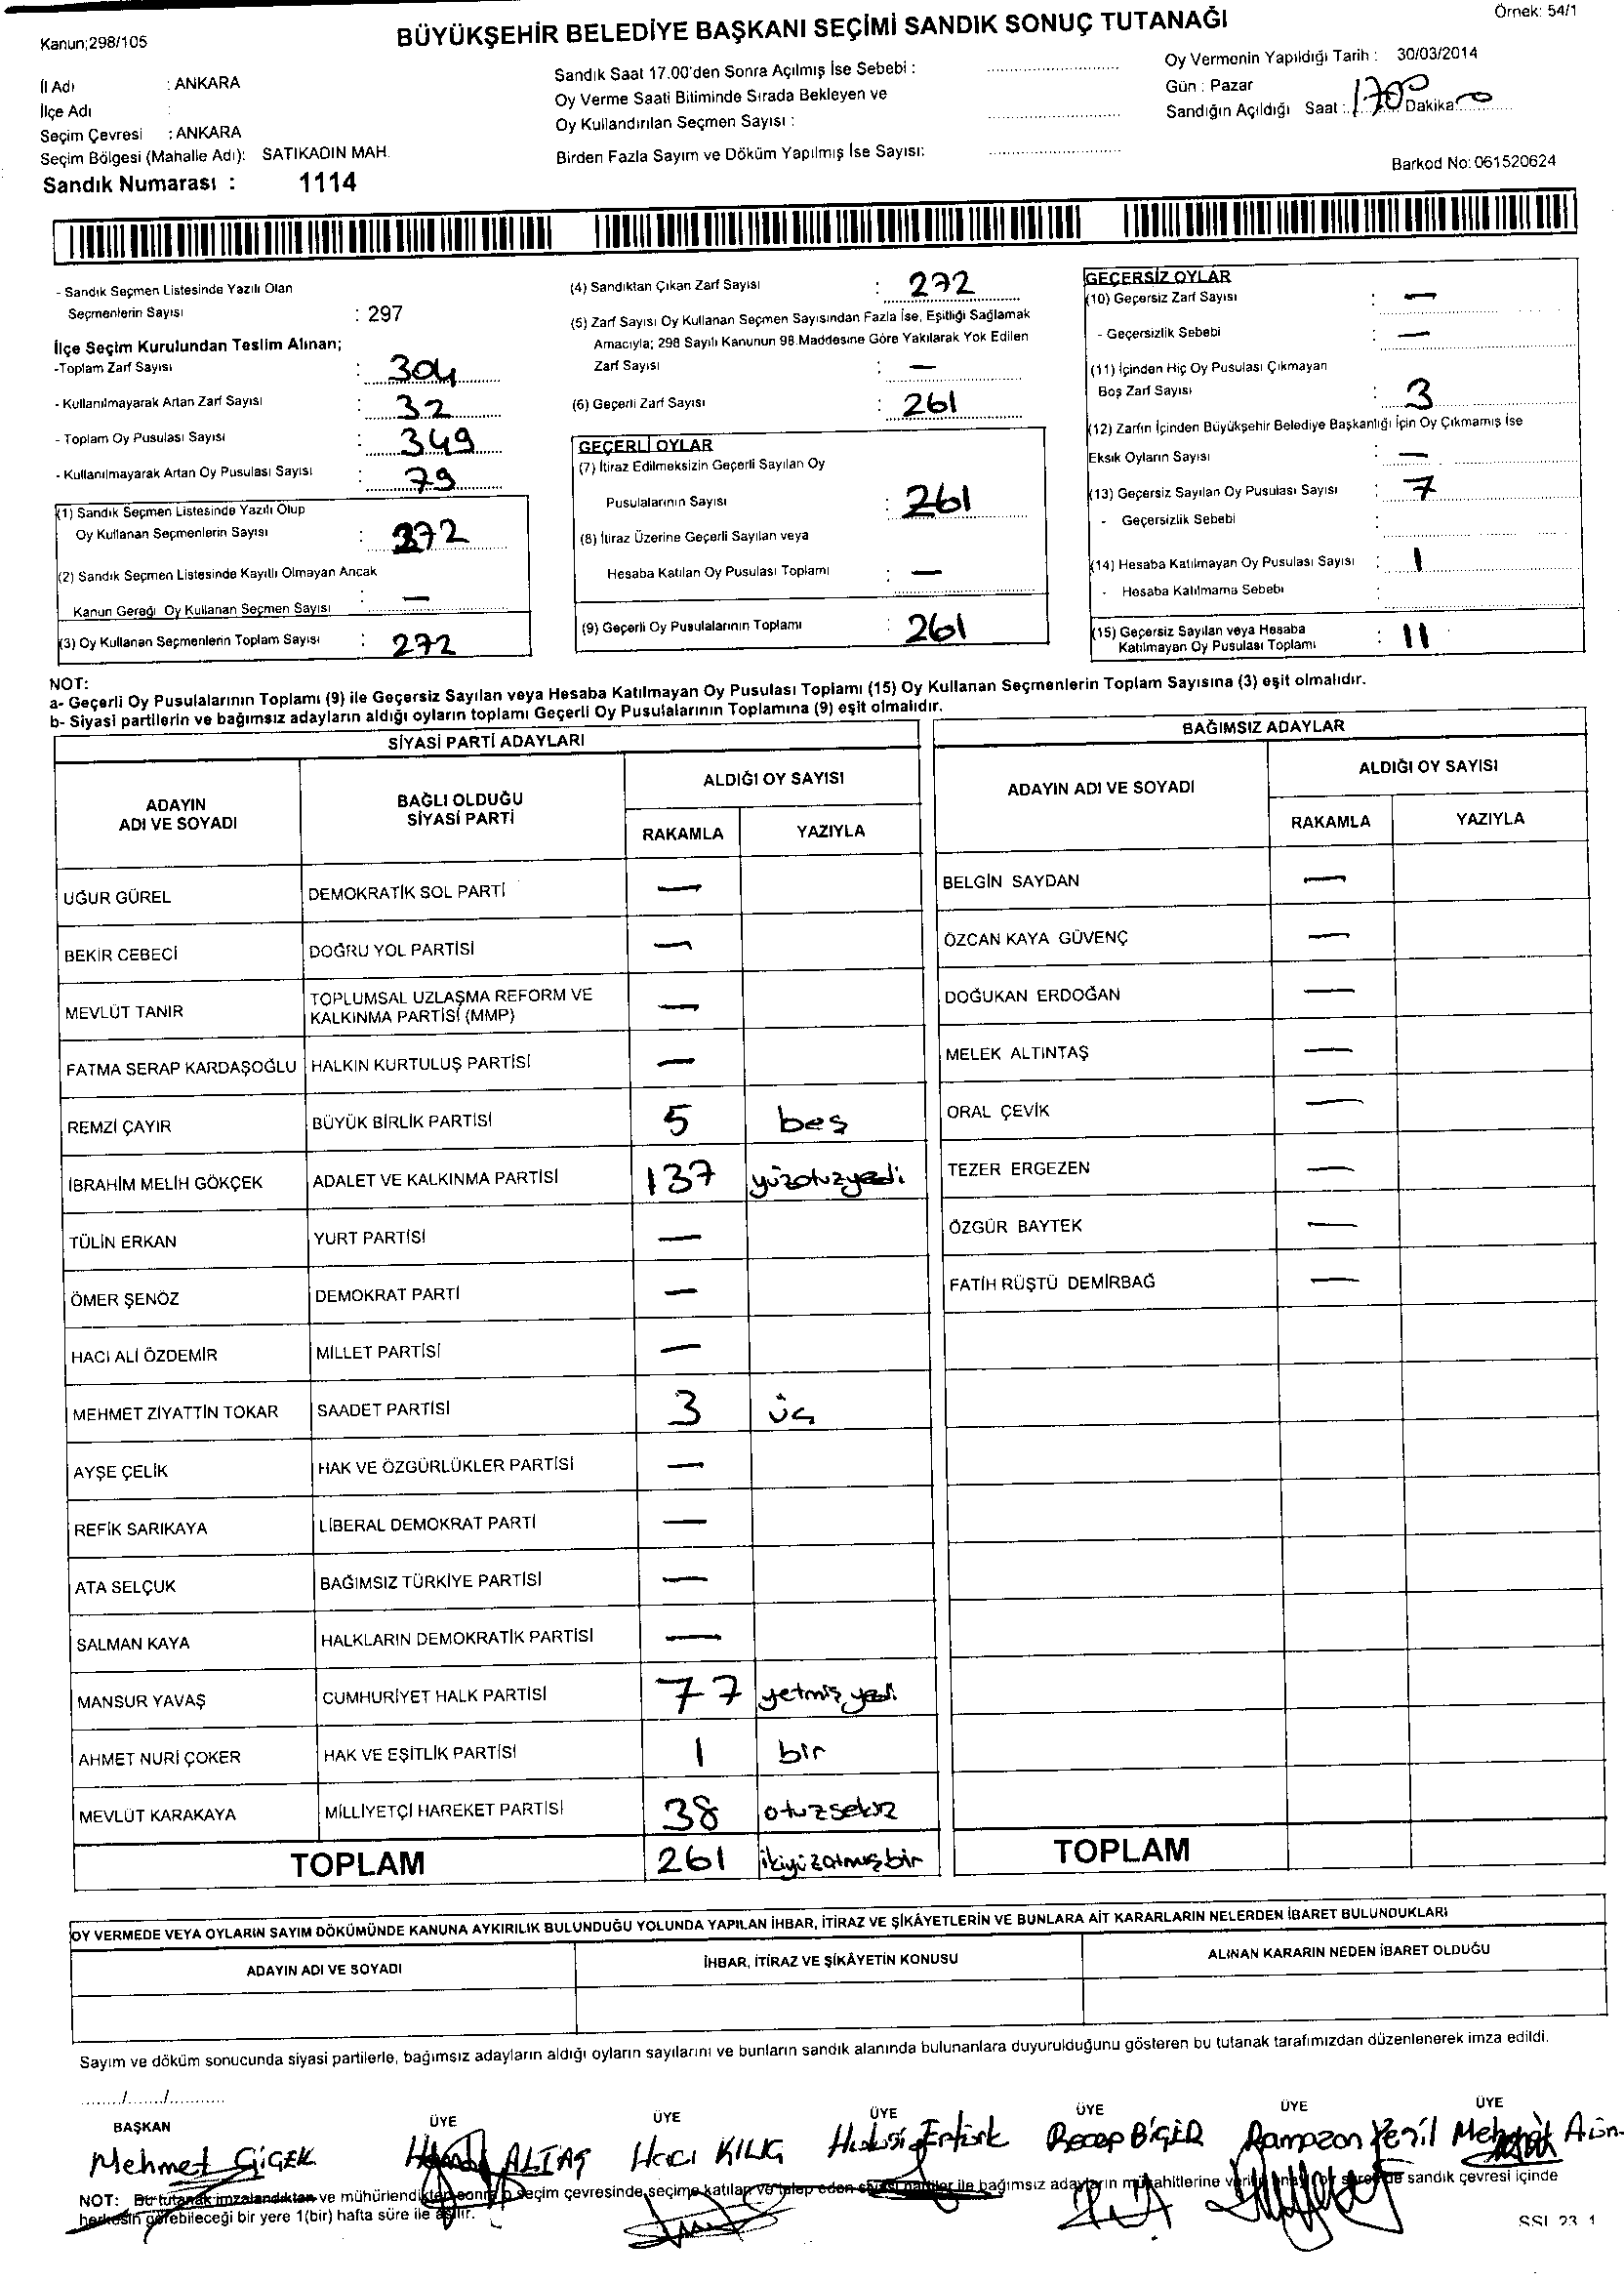 Örnek: 54/1
Kanun;298/105
BÜYÜKŞEHİR BELEDİYE BAŞKANI SEÇİMİ SANDIK SONUÇ TUTANAĞI
İl Adı : ANKARA
İlçe Adı :
Seçim Çevresi : ANKARA
Seçim Bölgesi (Mahalle Adı): SATIKADIN MAH.
Sandık Numarası : 1114
Sandık Saat 17.00'den Sonra Açılmış İse Sebebi :
Oy Verme Saati Bitiminde Sırada Bekleyen ve
Oy Kullandırılan Seçmen Sayısı :
Birden Fazla Sayım ve Döküm Yapılmış İse Sayısı:
Oy Vermenin Yapıldığı Tarih : 30/03/2014
Gün : Pazar
Sandığın Açıldığı Saat : 1700 Dakika
Barkod No: 061520624
- Sandık Seçmen Listesinde Yazılı Olan
Seçmenlerin Sayısı : 297
İlçe Seçim Kurulundan Teslim Alınan;
-Toplam Zarf Sayısı : 304
- Kullanılmayarak Artan Zarf Sayısı : 32
- Toplam Oy Pusulası Sayısı : 349
- Kullanılmayarak Artan Oy Pusulası Sayısı : 79
(1) Sandık Seçmen Listesinde Yazılı Olup
Oy Kullanan Seçmenlerin Sayısı : 272
(2) Sandık Seçmen Listesinde Kayıtlı Olmayan Ancak
Kanun Gereği Oy Kullanan Seçmen Sayısı : —
(3) Oy Kullanan Seçmenlerin Toplam Sayısı : 272
(4) Sandıktan Çıkan Zarf Sayısı : 272
(5) Zarf Sayısı Oy Kullanan Seçmen Sayısından Fazla İse, Eşitliği Sağlamak
Amacıyla; 298 Sayılı Kanunun 98.Maddesine Göre Yakılarak Yok Edilen
Zarf Sayısı : —
(6) Geçerli Zarf Sayısı : 261
GEÇERLİ OYLAR
(7) İtiraz Edilmeksizin Geçerli Sayılan Oy
Pusulalarının Sayısı : 261
(8) İtiraz Üzerine Geçerli Sayılan veya
Hesaba Katılan Oy Pusulası Toplamı : —
(9) Geçerli Oy Pusulalarının Toplamı : 261
GEÇERSİZ OYLAR
(10) Geçersiz Zarf Sayısı : —
- Geçersizlik Sebebi : —
(11) İçinden Hiç Oy Pusulası Çıkmayan
Boş Zarf Sayısı : 3
(12) Zarfın İçinden Büyükşehir Belediye Başkanlığı İçin Oy Çıkmamış İse
Eksik Oyların Sayısı : —
(13) Geçersiz Sayılan Oy Pusulası Sayısı : 7
- Geçersizlik Sebebi :
(14) Hesaba Katılmayan Oy Pusulası Sayısı : 1
- Hesaba Katılmama Sebebi :
(15) Geçersiz Sayılan veya Hesaba
Katılmayan Oy Pusulası Toplamı : 11
NOT:
a- Geçerli Oy Pusulalarının Toplamı (9) ile Geçersiz Sayılan veya Hesaba Katılmayan Oy Pusulası Toplamı (15) Oy Kullanan Seçmenlerin Toplam Sayısına (3) eşit olmalıdır.
b- Siyasi partilerin ve bağımsız adayların aldığı oyların toplamı Geçerli Oy Pusulalarının Toplamına (9) eşit olmalıdır.
SİYASİ PARTİ ADAYLARI
ADAYIN ADI VE SOYADI BAĞLI OLDUĞU SİYASİ PARTİ ALDIĞI OY SAYISI
RAKAMLA YAZIYLA
UĞUR GÜREL DEMOKRATİK SOL PARTİ —
BEKİR CEBECİ DOĞRU YOL PARTİSİ —
MEVLÜT TANIR TOPLUMSAL UZLAŞMA REFORM VE KALKINMA PARTİSİ (MMP) —
FATMA SERAP KARDAŞOĞLU HALKIN KURTULUŞ PARTİSİ —
REMZİ ÇAYIR BÜYÜK BİRLİK PARTİSİ 5 beş
İBRAHİM MELİH GÖKÇEK ADALET VE KALKINMA PARTİSİ 137 yüzotuzyedi
TÜLİN ERKAN YURT PARTİSİ —
ÖMER ŞENÖZ DEMOKRAT PARTİ —
HACI ALİ ÖZDEMİR MİLLET PARTİSİ —
MEHMET ZİYATTİN TOKAR SAADET PARTİSİ 3 üç
AYŞE ÇELİK HAK VE ÖZGÜRLÜKLER PARTİSİ —
REFİK SARIKAYA LİBERAL DEMOKRAT PARTİ —
ATA SELÇUK BAĞIMSIZ TÜRKİYE PARTİSİ —
SALMAN KAYA HALKLARIN DEMOKRATİK PARTİSİ —
MANSUR YAVAŞ CUMHURİYET HALK PARTİSİ 77 yetmiş yedi
AHMET NURİ ÇOKER HAK VE EŞİTLİK PARTİSİ 1 bir
MEVLÜT KARAKAYA MİLLİYETÇİ HAREKET PARTİSİ 38 otuzsekiz
TOPLAM 261 ikiyüzatmışbir
BAĞIMSIZ ADAYLAR
ADAYIN ADI VE SOYADI ALDIĞI OY SAYISI
RAKAMLA YAZIYLA
BELGİN SAYDAN —
ÖZCAN KAYA GÜVENÇ —
DOĞUKAN ERDOĞAN —
MELEK ALTINTAŞ —
ORAL ÇEVİK —
TEZER ERGEZEN —
ÖZGÜR BAYTEK —
FATİH RÜŞTÜ DEMİRBAĞ —
TOPLAM
OY VERMEDE VEYA OYLARIN SAYIM DÖKÜMÜNDE KANUNA AYKIRILIK BULUNDUĞU YOLUNDA YAPILAN İHBAR, İTİRAZ VE ŞİKÂYETLERİN VE BUNLARA AİT KARARLARIN NELERDEN İBARET BULUNDUKLARI
ADAYIN ADI VE SOYADI İHBAR, İTİRAZ VE ŞİKÂYETİN KONUSU ALINAN KARARIN NEDEN İBARET OLDUĞU
Sayım ve döküm sonucunda siyasi partilerle, bağımsız adayların aldığı oyların sayılarını ve bunların sandık alanında bulunanlara duyurulduğunu gösteren bu tutanak tarafımızdan düzenlenerek imza edildi.
......./......./............
BAŞKAN ÜYE ÜYE ÜYE ÜYE ÜYE ÜYE
Mehmet ÇİÇEK ALTAŞ Hacı KILIÇ Hulusi Ertürk Recep BİÇER Ramazan Yeşil Mehmet
NOT: Bu tutanak imzalandıktan ve mühürlendikten sonra o seçim çevresinde seçime katılan ve talep eden siyasi partiler ile bağımsız adayların müşahitlerine verilir sandık çevresi içinde
herkesin görebileceği bir yere 1(bir) hafta süre ile asılır.
SSI 23 1